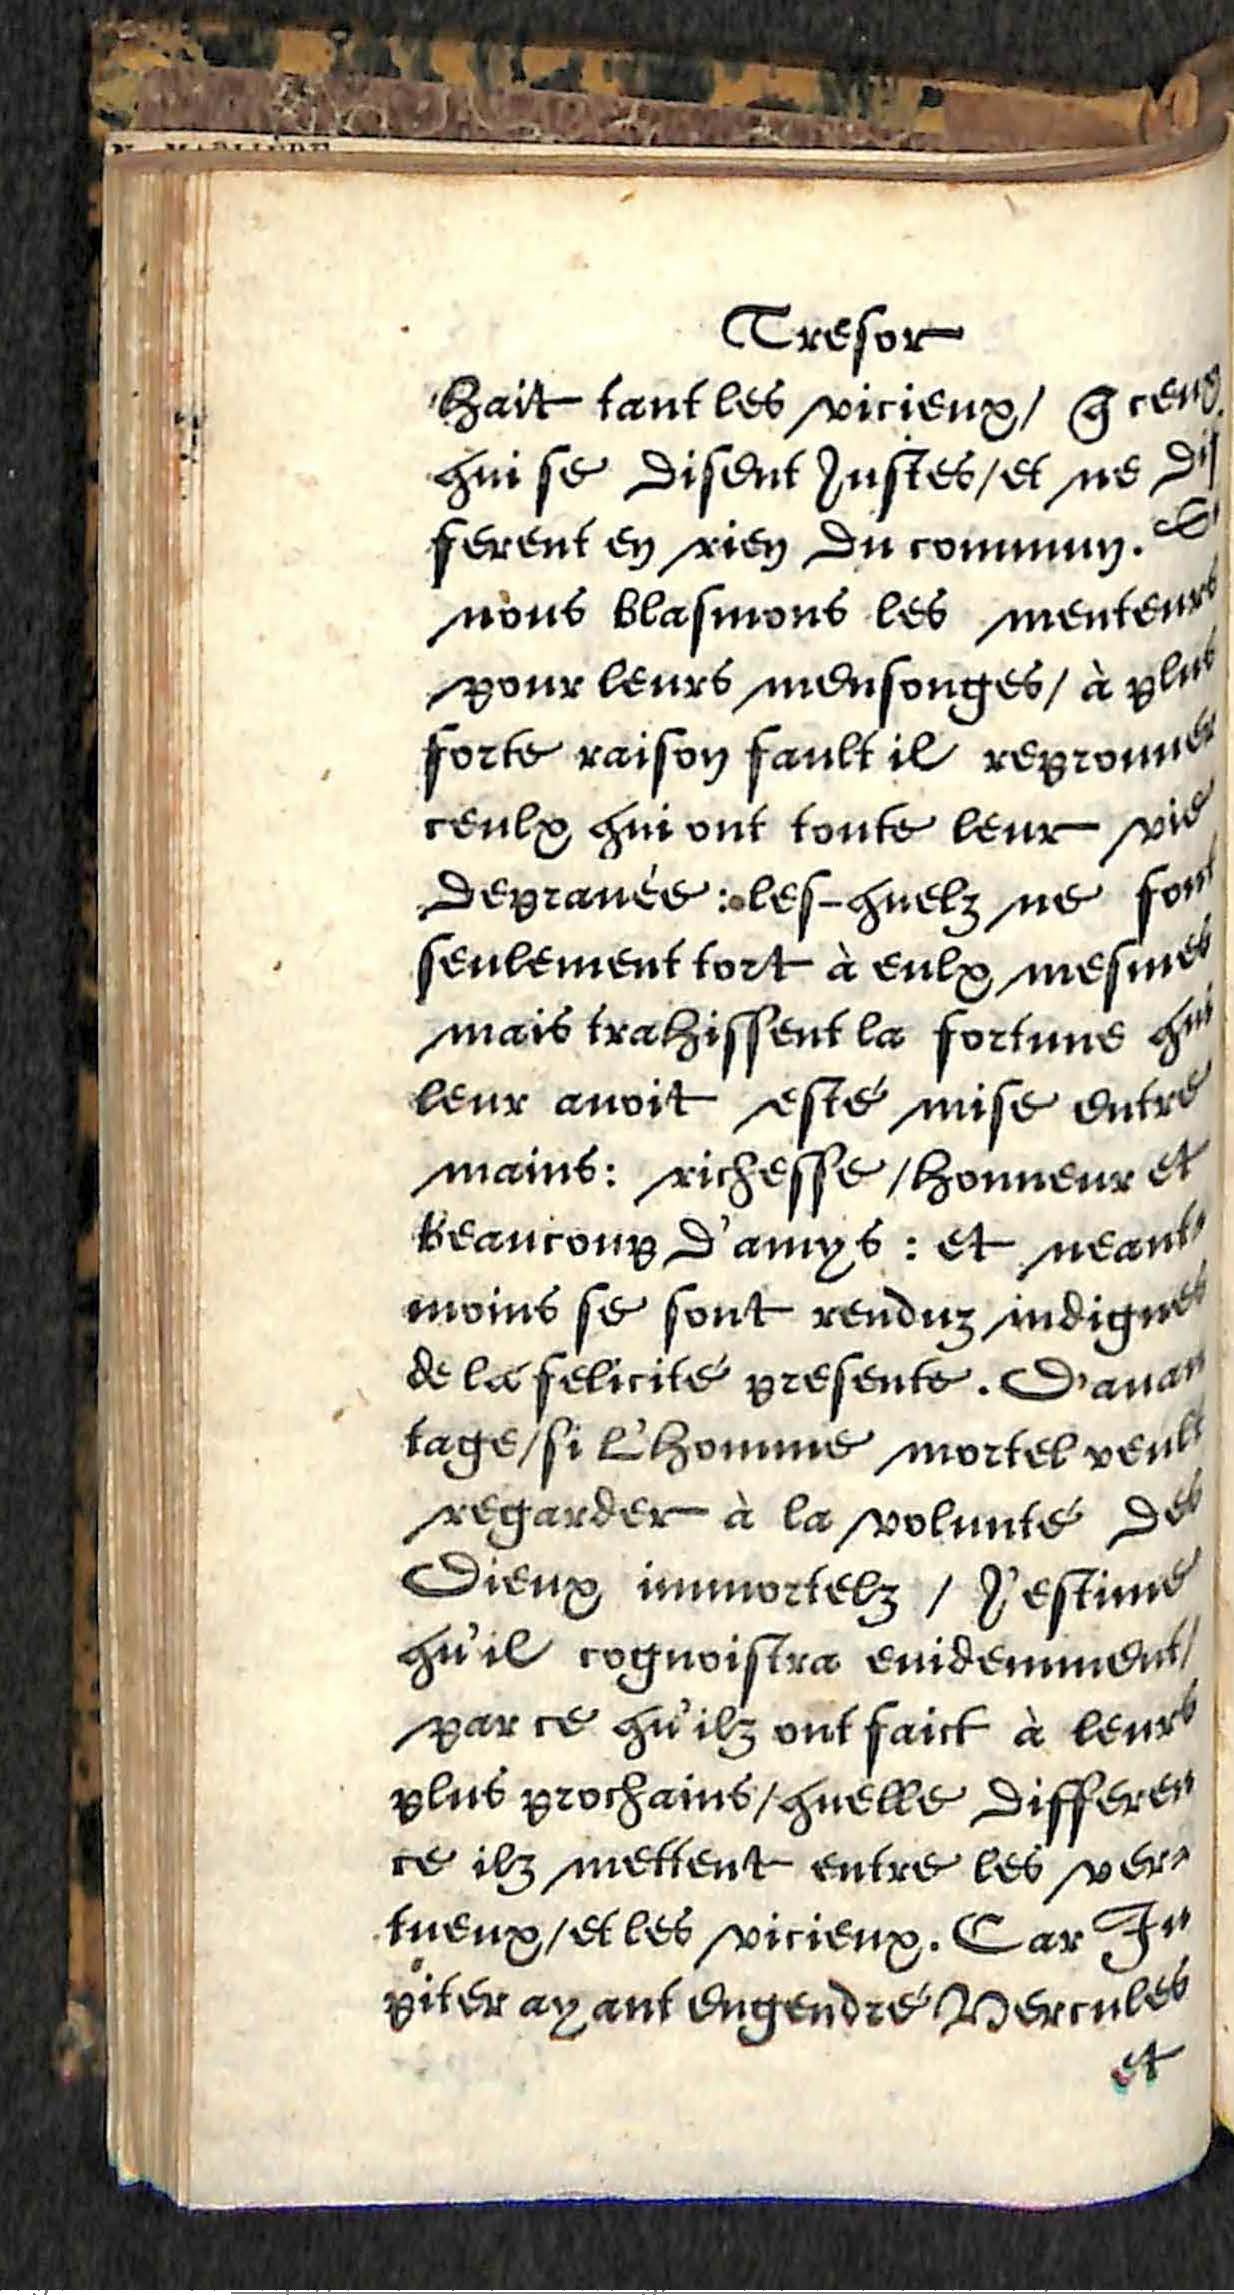 Tresor
hait tant les vicieux/ q̃ ceux
qui se disent Justes/et ne dif
ferent en rien du commun. Si
nous blasmons les menteurs
pour leurs mensonges/ à plus
forte raison fault il reprouuer
ceulx qui ont toute leur vie
deprauée: les-quelz ne font
seulement tort à eulx mesmes
mais trahissent la fortune qui
leur auoit esté mise entre
mains: richesse/honneur et
beaucoup d'amys: et neant-
moins se sont renduz indignes
de la felicité presente. D'auan
tage/si L'homme mortel veult
regarder à la volunté des
Dieux immortelz / J'estime
qu'il cognoistra euidemment/
par ce qu'ilz ont faict à leurs
plus prochains/quelle differen
ce ilz mettent entre les ver-
tueux/et les vicieux. Car Ju
piter ayant engendré Hercules
et